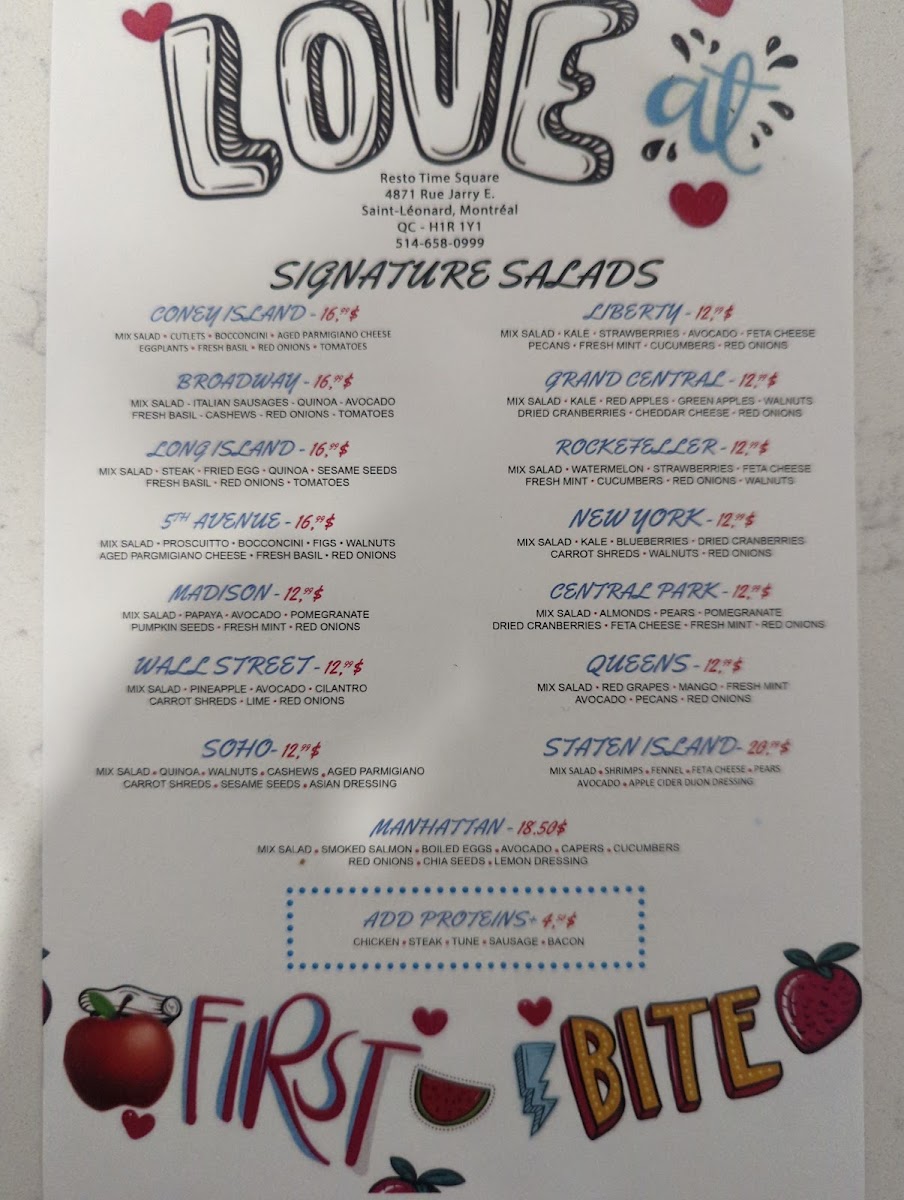 LOVE at
Resto Time Square
4871 Rue Jarry E.
Saint-Léonard, Montréal
QC - H1R 1Y1
514-658-0999
SIGNATURE SALADS
CONEY ISLAND - 16,99$
MIX SALAD • CUTLETS • BOCCONCINI • AGED PARMIGIANO CHEESE
EGGPLANTS • FRESH BASIL • RED ONIONS • TOMATOES
BROADWAY - 16,99$
MIX SALAD - ITALIAN SAUSAGES - QUINOA - AVOCADO
FRESH BASIL - CASHEWS - RED ONIONS - TOMATOES
LONG ISLAND - 16,99$
MIX SALAD • STEAK • FRIED EGG • QUINOA • SESAME SEEDS
FRESH BASIL • RED ONIONS • TOMATOES
5TH AVENUE - 16,99$
MIX SALAD • PROSCUITTO • BOCCONCINI • FIGS • WALNUTS
AGED PARGMIGIANO CHEESE • FRESH BASIL • RED ONIONS
MADISON - 12,99$
MIX SALAD • PAPAYA • AVOCADO • POMEGRANATE
PUMPKIN SEEDS • FRESH MINT • RED ONIONS
WALL STREET - 12,99$
MIX SALAD • PINEAPPLE • AVOCADO • CILANTRO
CARROT SHREDS • LIME • RED ONIONS
SOHO - 12,99$
MIX SALAD • QUINOA • WALNUTS • CASHEWS • AGED PARMIGIANO
CARROT SHREDS • SESAME SEEDS • ASIAN DRESSING
LIBERTY - 12,99$
MIX SALAD • KALE • STRAWBERRIES • AVOCADO • FETA CHEESE
PECANS • FRESH MINT • CUCUMBERS • RED ONIONS
GRAND CENTRAL - 12,99$
MIX SALAD • KALE • RED APPLES • GREEN APPLES • WALNUTS
DRIED CRANBERRIES • CHEDDAR CHEESE • RED ONIONS
ROCKEFELLER - 12,99$
MIX SALAD • WATERMELON • STRAWBERRIES • FETA CHEESE
FRESH MINT • CUCUMBERS • RED ONIONS • WALNUTS
NEW YORK - 12,99$
MIX SALAD • KALE • BLUEBERRIES • DRIED CRANBERRIES
CARROT SHREDS • WALNUTS • RED ONIONS
CENTRAL PARK - 12,99$
MIX SALAD • ALMONDS • PEARS • POMEGRANATE
DRIED CRANBERRIES • FETA CHEESE • FRESH MINT • RED ONIONS
QUEENS - 12,99$
MIX SALAD • RED GRAPES • MANGO • FRESH MINT
AVOCADO • PECANS • RED ONIONS
STATEN ISLAND - 20,99$
MIX SALAD • SHRIMPS • FENNEL • FETA CHEESE • PEARS
AVOCADO • APPLE CIDER DIJON DRESSING
MANHATTAN - 18.50$
MIX SALAD • SMOKED SALMON • BOILED EGGS • AVOCADO • CAPERS • CUCUMBERS
RED ONIONS • CHIA SEEDS • LEMON DRESSING
ADD PROTEINS+ 4,50$
CHICKEN • STEAK • TUNE • SAUSAGE • BACON
FIRST BITE